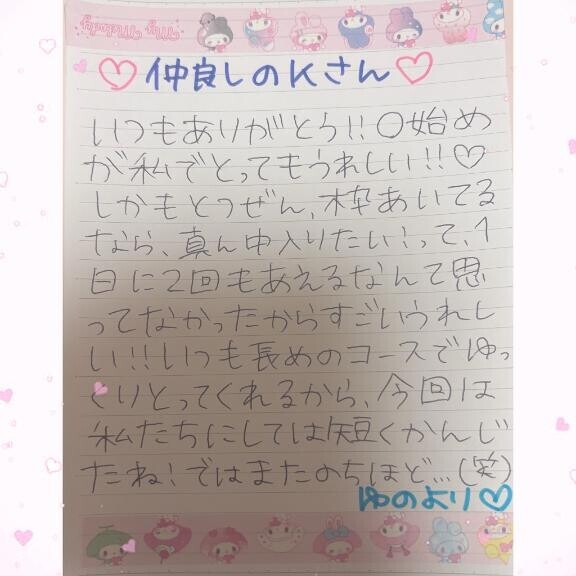 My Melody
♡仲良しのKさん♡
いつもありがとう!!〇始め
が私でとってもうれしい!!♡
しかもとつぜん、枠あいてる
なら、真ん中入りたい!って、1
日に2回もあえるなんて思
ってなかったからすごいうれし
い!!いつも長めのコースでゆっ
くりとってくれるから、今回は
私たちにしては短くかんじ
たね!ではまたのちほど…(笑)
ゆのより♡